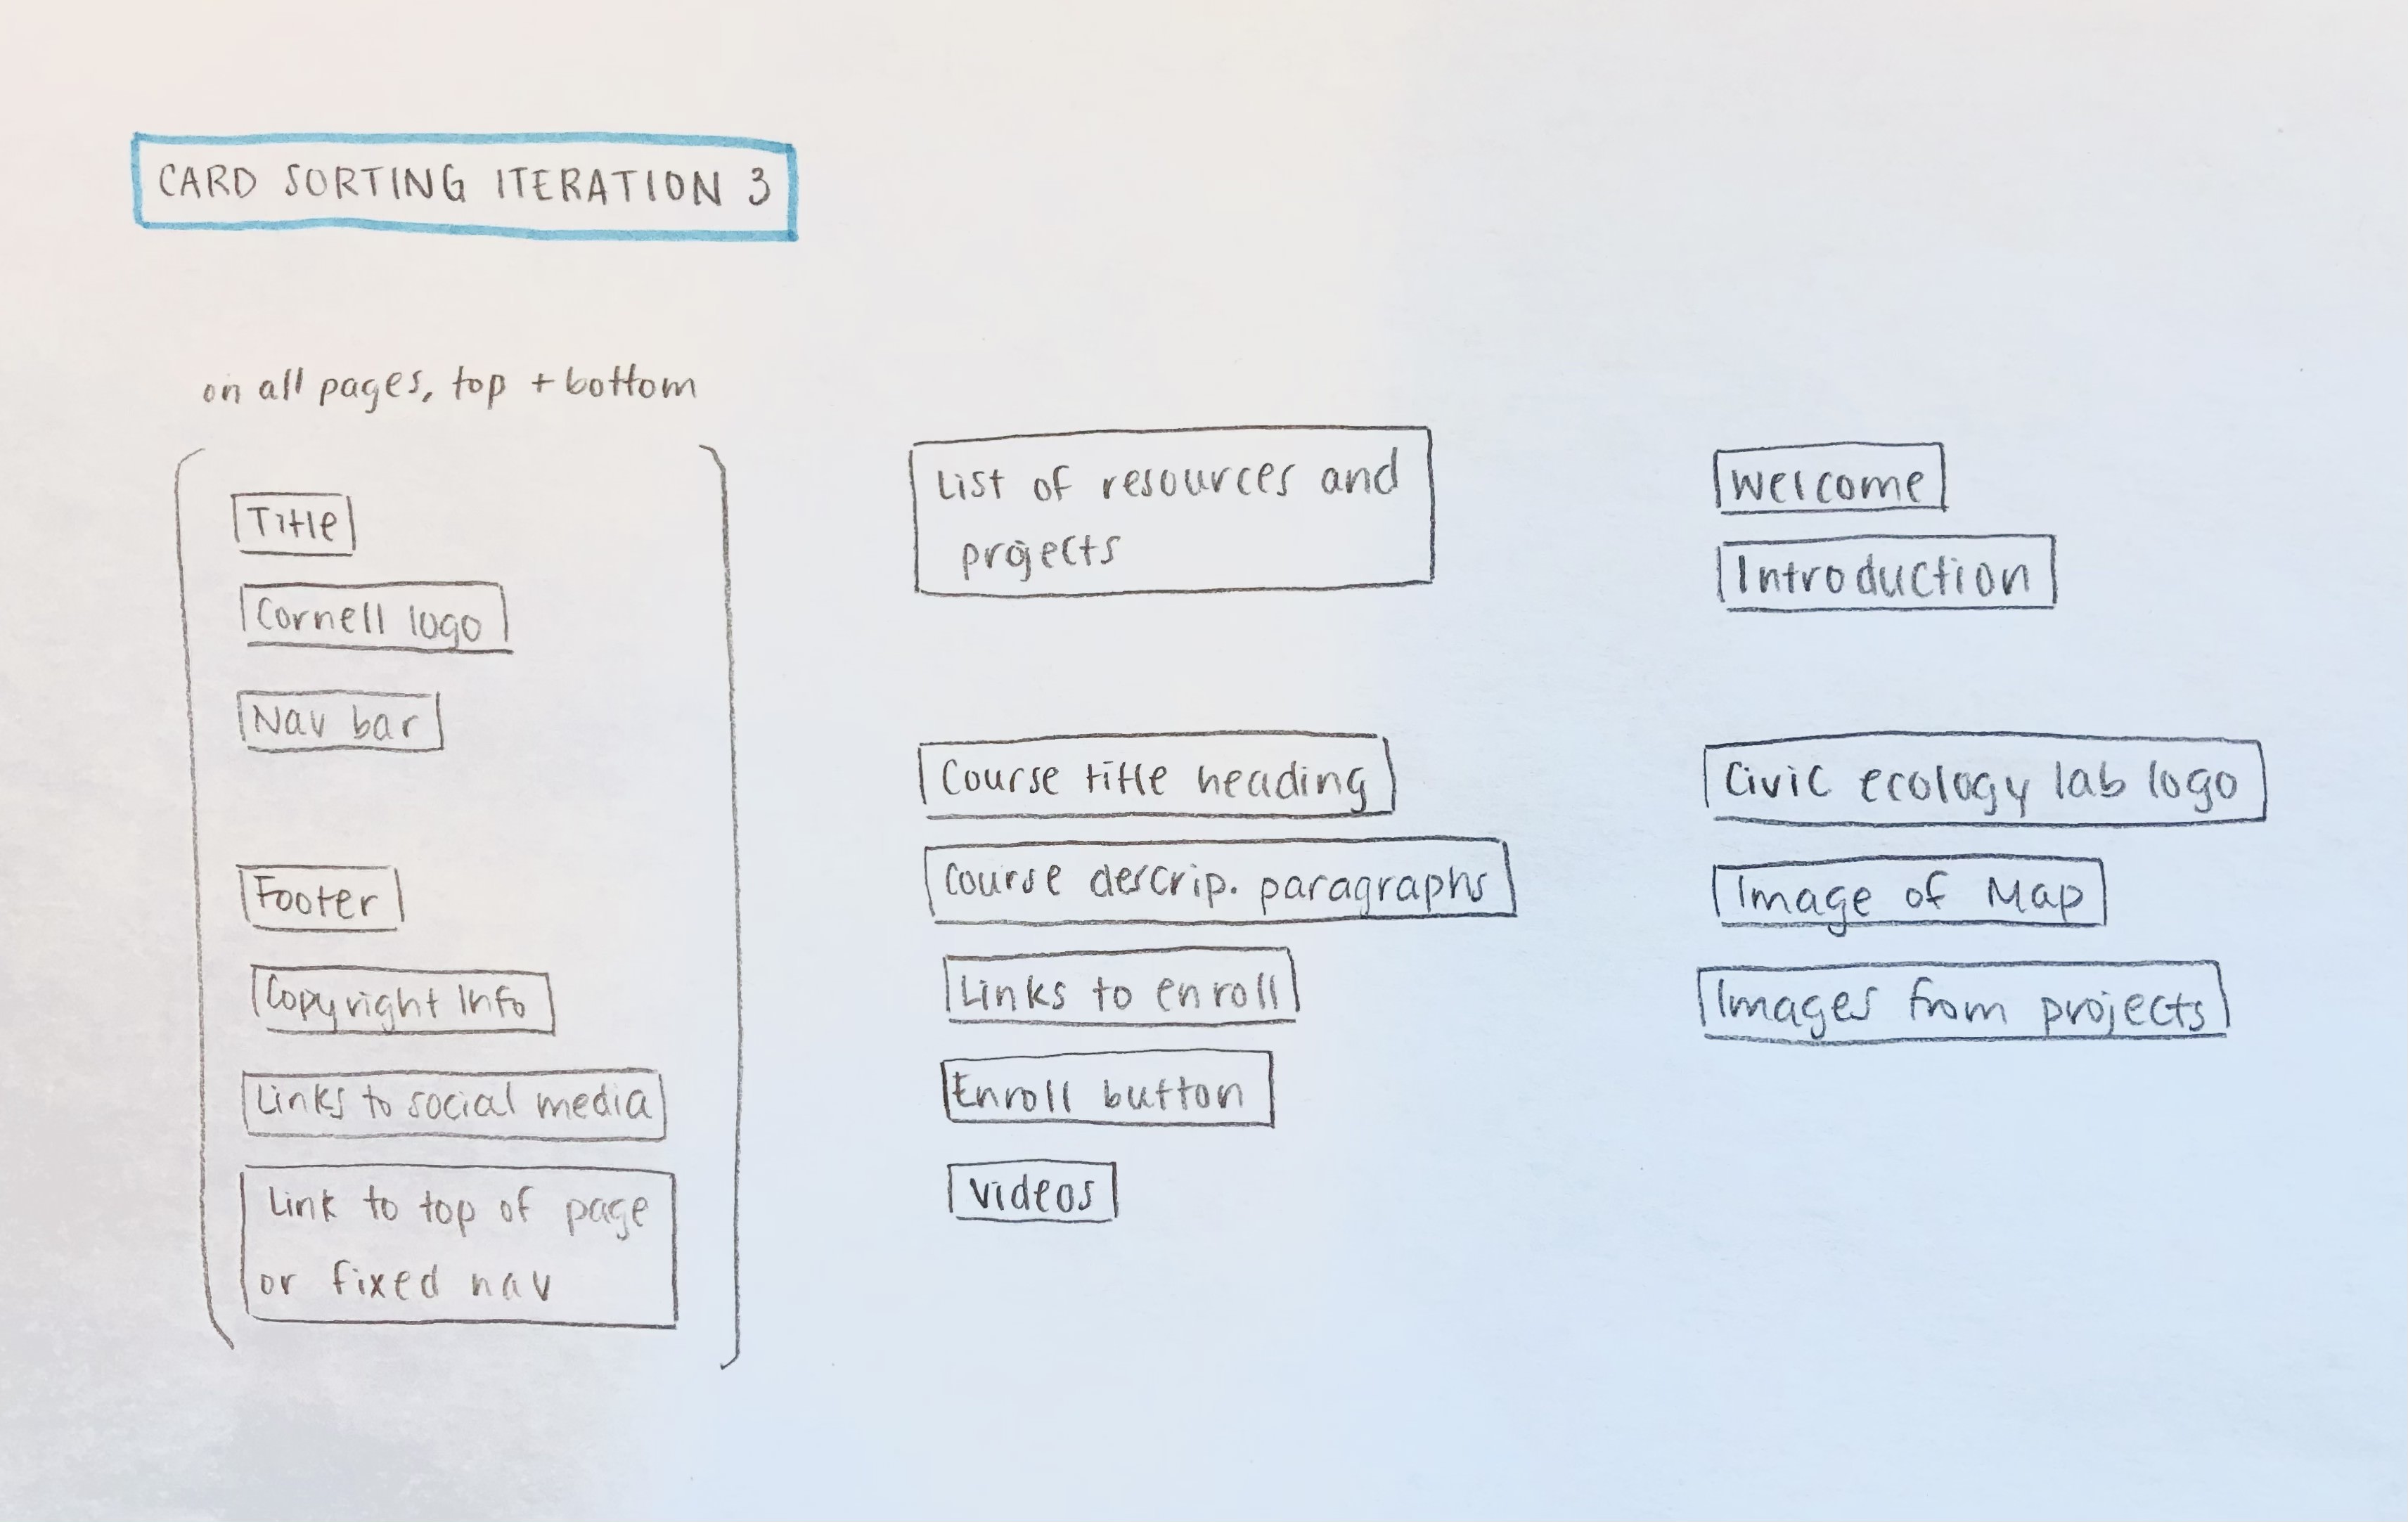 CARD SORTING ITERATION 3
on all pages, top + bottom
Title
Cornell logo
Nav bar
Footer
Copyright Info
Links to social media
Link to top of page
or fixed nav
List of resources and
projects
Course title heading
Course descrip. paragraphs
Links to enroll
Enroll button
Videos
Welcome
Introduction
Civic ecology lab logo
Image of Map
Images from projects